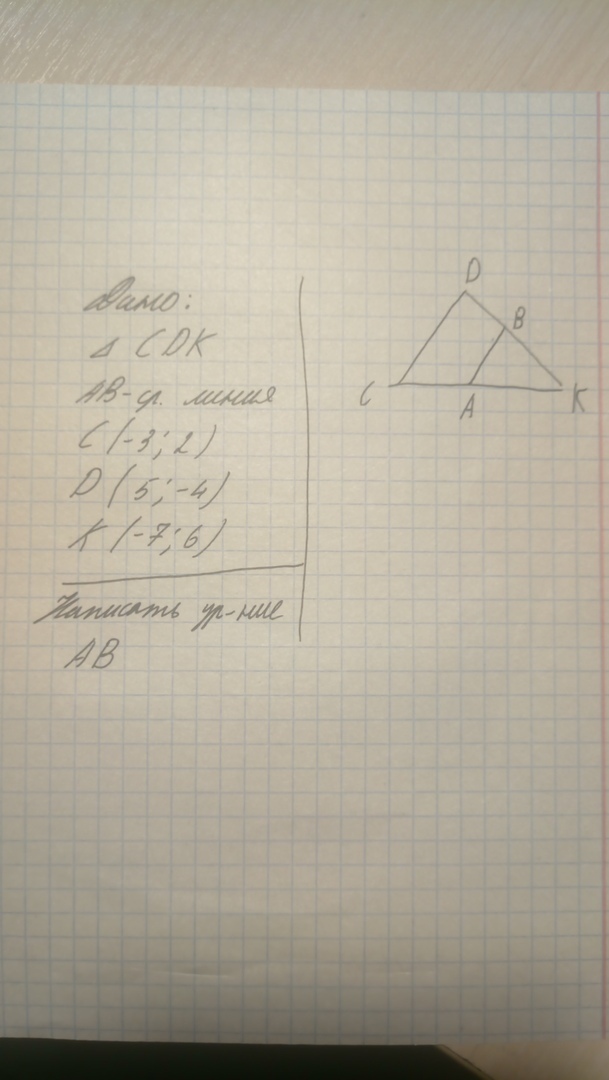 Дано:
Δ CDK
AB-ср. линия
C (-3; 2)
D (5; -4)
K (-7; 6)
Написать ур-ние
AB
D
B
C
A
K